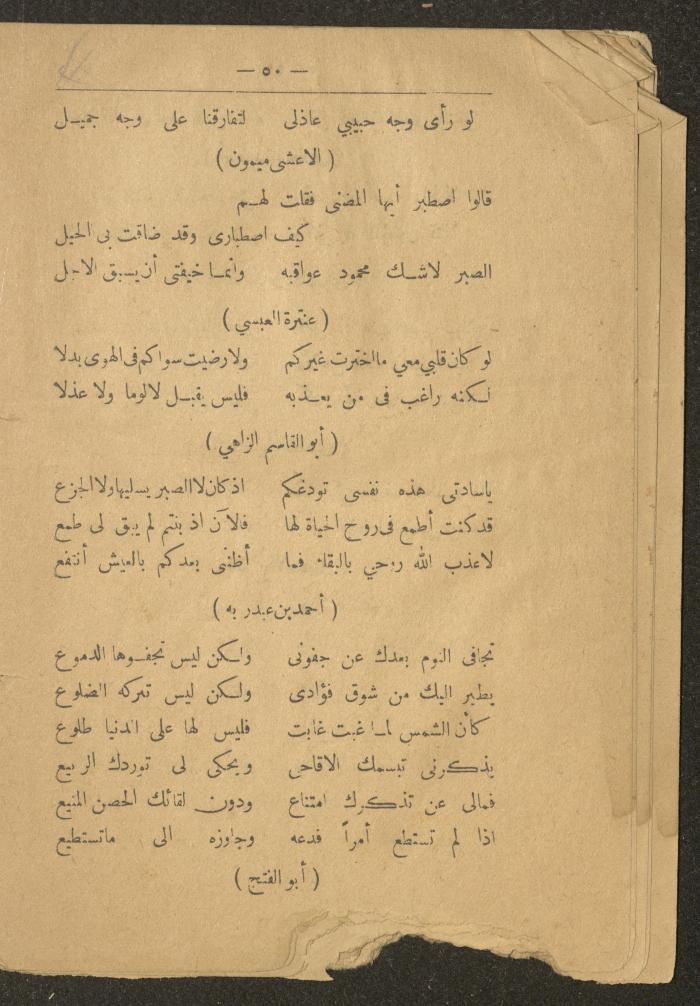 — ٥٠ —
لو رأى وجه حبيبي عاذلى لتفارقنا على وجه جميل
( الاعشى ميمون )
قالوا اصطبر أيها المضنى فقلت لهم
كيف اصطبارى وقد ضاقت بى الحيل
الصبر لاشك محمود عواقبه وانما خيفتى أن يسبق الاجل
( عنترة العبسي )
لو كان قلبي معي ما اخترت غيركم ولا رضيت سواكم فى الهوى بدلا
لكنه راغب فى من يعذبه فليس يقبل لا لوما ولا عذلا
( أبو القاسم الزاهي )
ياسادتى هذه نفسى تودعكم اذ كان لا الصبر يسليها ولا الجزع
قد كنت أطمع فى روح الحياة لها فالآن اذ بنتم لم يبق لى طمع
لاعذب الله روحي بالبقاء فما أظنى بعدكم بالعيش أنتفع
( أحمد بن عبدر به )
تجافى النوم بعدك عن جفونى ولكن ليس تجفوها الدموع
يطير اليك من شوق فؤادى ولكن ليس تتركه الضلوع
كأن الشمس لما غبت غابت فليس لها على الدنيا طلوع
يذكرنى تبسمك الاقاحى ويحكى لى توردك الربيع
فمالى عن تذكرك امتناع ودون لقائك الحصن المنيع
اذا لم تستطع أمراً فدعه وجاوزه الى ماتستطيع
( أبو الفتح )